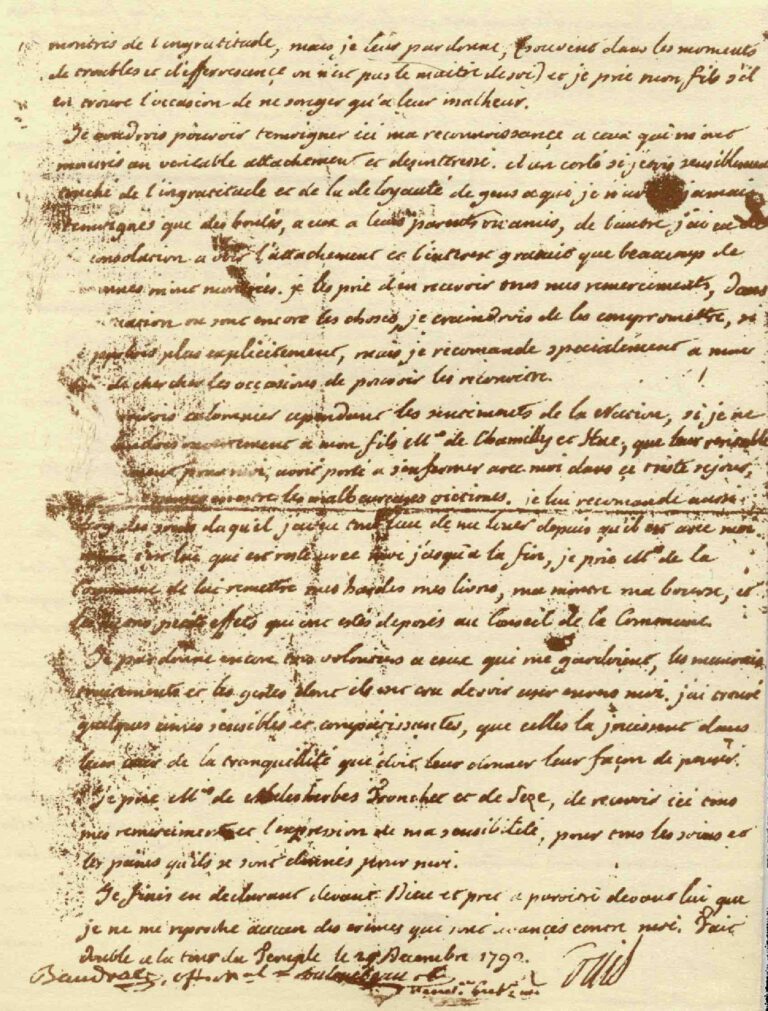 montrés de l'ingratitude, mais je leur pardonne, (souvent dans les moments
de troubles et d'effervescence on n'est pas le maitre de soi) et je prie mon fils s'il
en trouve l'occasion de ne songer qu'a leur malheur.
Je voudrois pouvoir temoigner ici ma reconnoissance a ceux qui m'ont
montrés un veritable attachement et desinteressé. d'un coté si j'etois sensiblement
touché de l'ingratitude et de la deloyauté de gens a qui je n'avois jamais
temoignés que des bontés, a eux a leurs parents ou amis, de l'autre j'ai eu de
consolation a voir l'attachement et l'interest gratuit que beaucoup de
m'ont montrées. je les prie d'en recevoir tous mes remerciments, dans
ou sont encore les choses, je craindrois de les compromettre, si
je parlois plus explicitement, mais je recomande specialement a mon
de chercher les occasions de pouvoir les reconnoitre.
calomnier cependant les sentiments de la Nation, si je ne
ouvertement a mon fils Mrs de Chamilly et Hue, que leur veritable
pour moi, avoit porté a s'enfermer avec moi dans ce triste sejour,
les malheureuses victimes. je lui recomande aussi
des soins duquel j'ai eu tout lieu de me louer depuis qu'il est avec moi
c'est lui qui est resté avec moi jusqu'a la fin, je prie Mrs de la
Commune de lui remettre mes hardes mes livres, ma montre ma bourse, et
les autres petits effets qui ont estés deposés au Conseil de la Commune.
Je pardonne encore tres volontiers a ceux qui me gardoient, les mauvais
traitements et les gestes dont ils ont cru devoir user envers moi. j'ai trouvé
quelques ames sensibles et compatissantes, que celles la jouissent dans
leur cœur de la tranquillité que doit leur donner leur façon de penser.
Je prie Mrs de Malesherbes Tronchet et de Seze, de recevoir ici tous
mes remerciments et l'expression de ma sensibilité, pour tous les soins et
les peines qu'ils se sont donnés pour moi.
Je finis en declarant devant Dieu et pret a paroitre devant lui que
je ne me reproche aucun des crimes qui sont avancés contre moi. Fait
double a la tour du Temple le 25 Decembre 1792.
Louis
Baudrais, off. mal